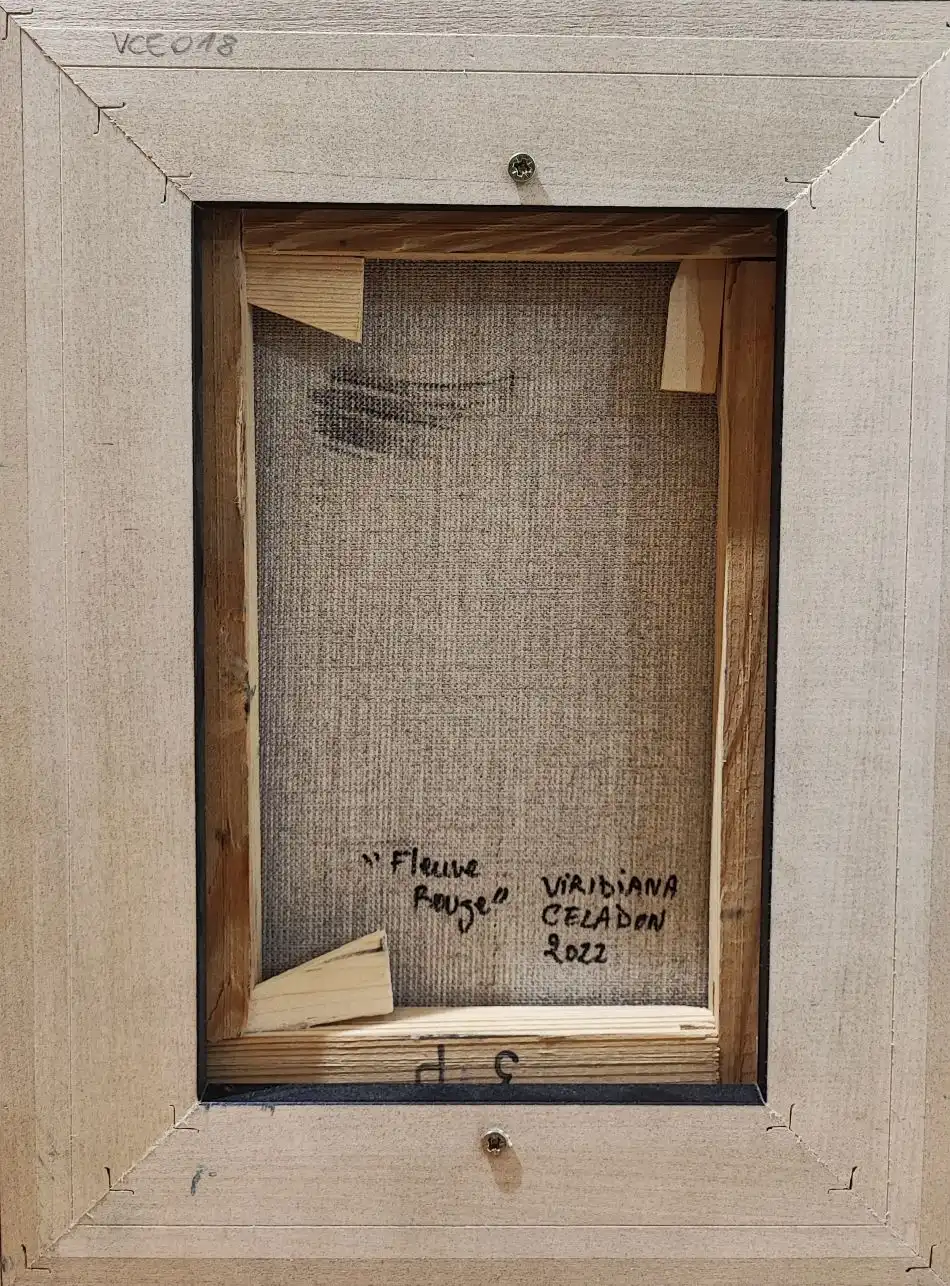 VCE018
"Fleuve
Rouge"
ViRiDiANA
CELADON
2022